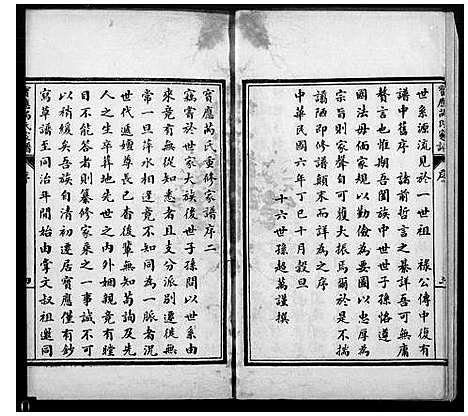 世系源流見於一世祖　祿公傳中復有
譜中舊序　諸前哲言之綦詳吾可無庸
贅言也惟期吾閤族中世世子孫恪遵
國法毋偭家規以勤儉為要圖以忠厚為
宗旨則家聲自可復大振焉爾於是不揣
譾陋即修譜顛末而詳為之序
中華民國六年丁巳十月穀旦
十六世孫超萬謹撰
寶應萬氏重修家譜序二
竊嘗見世家大族後世子孫間以世系由
來竟有從無知悉者且支分派別遷徙無
常一旦萍水相逢竟不知同為一脈者況
世代遞嬗尊長已耆後輩無知萬詢及先
人之生卒葬地先世之內外姻親竟有瞠
目不能答者則纂修家乘之一事誠不可
以稍緩矣吾族自清初遷居寶應僅有鈔
寫草譜至同治年開始由掌文叔祖邀同